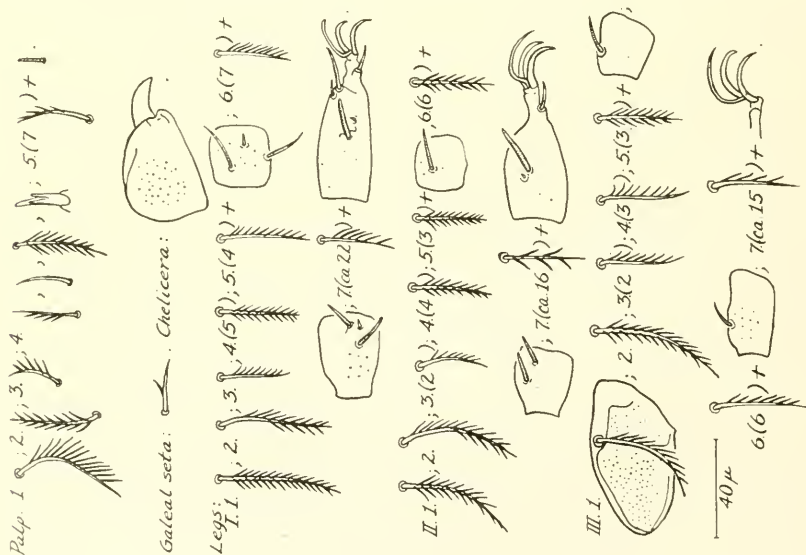 Palp. 1 ; 2. ; 3. ; 4. , , , ; 5.(7 ) + .
Galeal seta: . Chelicera: .
Legs:
I.1. ; 2. ; 3. ; 4.(5 ); 5.(4 ) + ; 6.(7 ) +
; 7.(ca.22 ) + .
II.1. ; 2. ; 3.(2 ); 4.(4 ); 5.(3 ) + ; 6.(6 ) +
; 7.(ca.16 ) + .
III.1. ; 2. ; 3.(2 ); 4.(3 ); 5.(3 ) + ;
6.(6 ) + ; 7.(ca.15 ) + .
40 µ